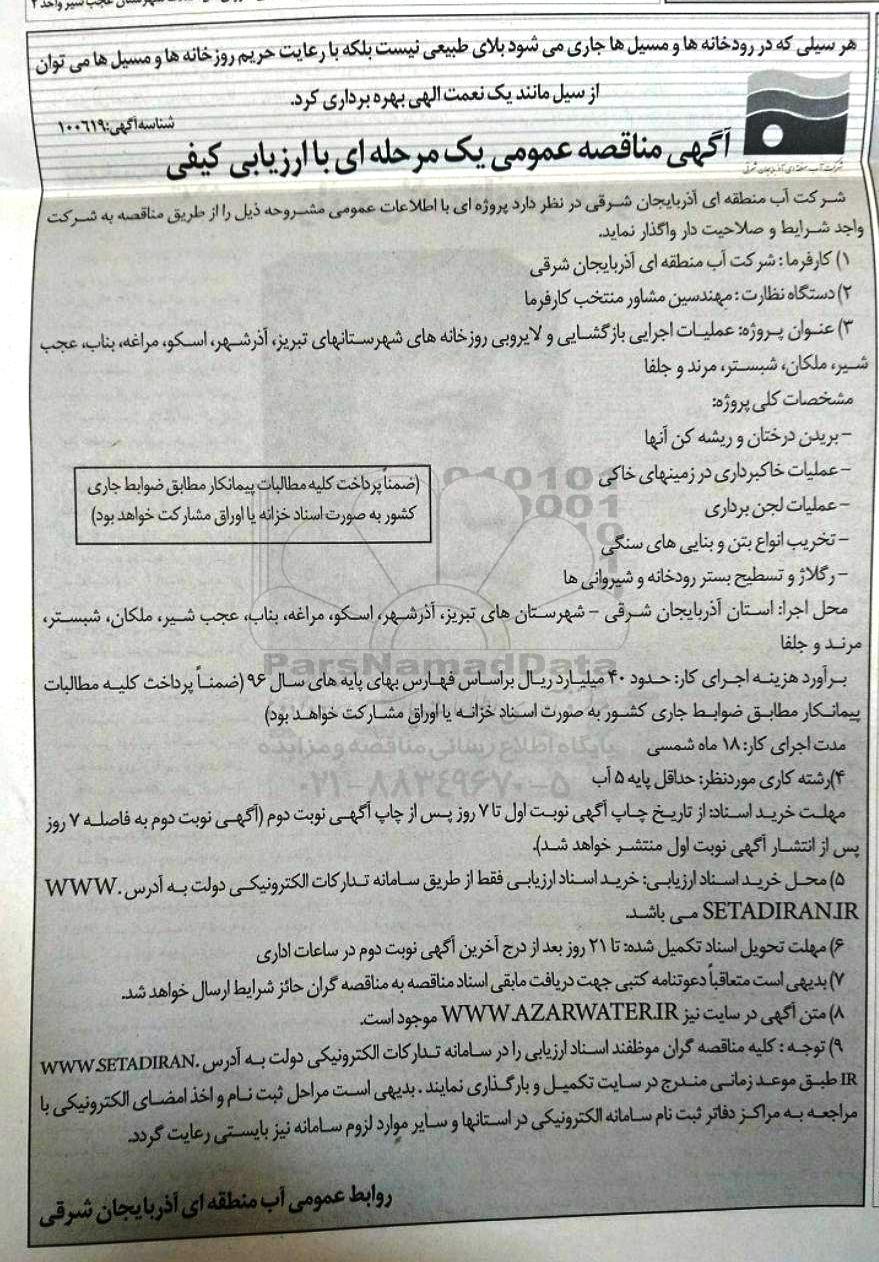 هر سیلی که در رودخانه ها و مسیل ها جاری می شود بلای طبیعی نیست بلکه با رعایت حریم روزخانه ها و مسیل ها می توان
از سیل مانند یک نعمت الهی بهره برداری کرد.
شناسه آگهی: ۱۰۰۶۱۹
آگهی مناقصه عمومی یک مرحله ای با ارزیابی کیفی
شرکت آب منطقه ای آذربایجان شرقی
شرکت آب منطقه ای آذربایجان شرقی در نظر دارد پروژه ای با اطلاعات عمومی مشروحه ذیل را از طریق مناقصه به شرکت
واجد شرایط و صلاحیت دار واگذار نماید.
۱) کارفرما : شرکت آب منطقه ای آذربایجان شرقی
۲) دستگاه نظارت : مهندسین مشاور منتخب کارفرما
۳) عنوان پروژه: عملیات اجرایی بازگشایی و لایروبی روزخانه های شهرستانهای تبریز، آذرشهر، اسکو، مراغه، بناب، عجب
شیر، ملکان، شبستر، مرند و جلفا
مشخصات کلی پروژه:
- بریدن درختان و ریشه کن آنها
- عملیات خاکبرداری در زمینهای خاکی
- عملیات لجن برداری
- تخریب انواع بتن و بنایی های سنگی
- رگلاژ و تسطیح بستر رودخانه و شیروانی ها
(ضمناً پرداخت کلیه مطالبات پیمانکار مطابق ضوابط جاری
کشور به صورت اسناد خزانه یا اوراق مشارکت خواهد بود)
محل اجرا: استان آذربایجان شرقی - شهرستان های تبریز، آذرشهر، اسکو، مراغه، بناب، عجب شیر، ملکان، شبستر،
مرند و جلفا
برآورد هزینه اجرای کار: حدود ۴۰ میلیارد ریال براساس فهارس بهای پایه های سال ۹۶ (ضمناً پرداخت کلیه مطالبات
پیمانکار مطابق ضوابط جاری کشور به صورت اسناد خزانه یا اوراق مشارکت خواهد بود)
مدت اجرای کار: ۱۸ ماه شمسی
۴)رشته کاری موردنظر: حداقل پایه ۵ آب
مهلت خرید اسناد: از تاریخ چاپ آگهی نوبت اول تا ۷ روز پس از چاپ آگهی نوبت دوم (آگهی نوبت دوم به فاصله ۷ روز
پس از انتشار آگهی نوبت اول منتشر خواهد شد).
۵) محل خرید اسناد ارزیابی: خرید اسناد ارزیابی فقط از طریق سامانه تدارکات الکترونیکی دولت به آدرس WWW.
SETADIRAN.IR می باشد.
۶) مهلت تحویل اسناد تکمیل شده: تا ۲۱ روز بعد از درج آخرین آگهی نوبت دوم در ساعات اداری
۷) بدیهی است متعاقباً دعوتنامه کتبی جهت دریافت مابقی اسناد مناقصه به مناقصه گران حائز شرایط ارسال خواهد شد.
۸) متن آگهی در سایت نیز WWW.AZARWATER.IR موجود است.
۹) توجه : کلیه مناقصه گران موظفند اسناد ارزیابی را در سامانه تدارکات الکترونیکی دولت به آدرس WWW.SETADIRAN.
IR طبق موعد زمانی مندرج در سایت تکمیل و بارگذاری نمایند . بدیهی است مراحل ثبت نام و اخذ امضای الکترونیکی با
مراجعه به مراکز دفاتر ثبت نام سامانه الکترونیکی در استانها و سایر موارد لزوم سامانه نیز بایستی رعایت گردد.
روابط عمومی آب منطقه ای آذربایجان شرقی
ParsNamadData
پایگاه اطلاع رسانی مناقصه و مزایده
۰۲۱-۸۸۳۴۹۶۷۰-۵